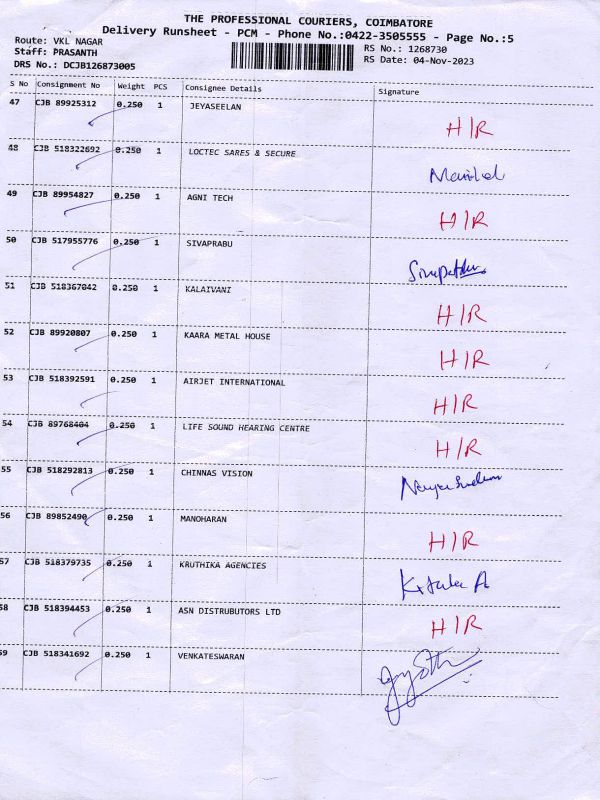 THE PROFESSIONAL COURIERS, COIMBATORE
Delivery Runsheet - PCM - Phone No.:0422-3505555 - Page No.:5
Route: VKL NAGAR RS No.: 1268730
Staff: PRASANTH RS Date: 04-Nov-2023
DRS No.: DCJB126873005
S No Consignment No Weight PCS Consignee Details Signature
47 CJB 89925312 0.250 1 JEYASEELAN H/R
48 CJB 518322692 0.250 1 LOCTEC SARES & SECURE
49 CJB 89954827 0.250 1 AGNI TECH H/R
50 CJB 517955776 0.250 1 SIVAPRABU
51 CJB 518367042 0.250 1 KALAIVANI H/R
52 CJB 89920807 0.250 1 KAARA METAL HOUSE H/R
53 CJB 518392591 0.250 1 AIRJET INTERNATIONAL H/R
54 CJB 89768404 0.250 1 LIFE SOUND HEARING CENTRE H/R
55 CJB 518292813 0.250 1 CHINNAS VISION
56 CJB 89852490 0.250 1 MANOHARAN H/R
57 CJB 518379735 0.250 1 KRUTHIKA AGENCIES
58 CJB 518394453 0.250 1 ASN DISTRUBUTORS LTD H/R
59 CJB 518341692 0.250 1 VENKATESWARAN